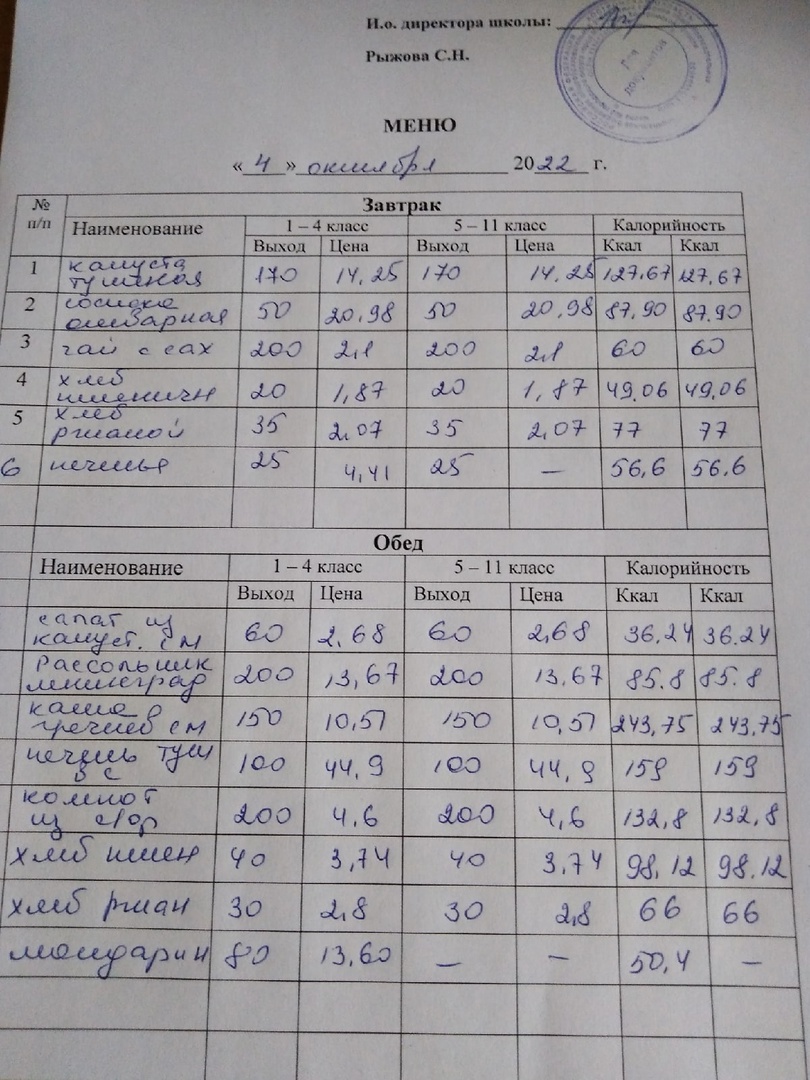 И.о. директора школы:
Рыжова С.Н.
Для
документов
МЕНЮ
« 4 » октября 2022 г.
№ п/п Завтрак
Наименование 1 – 4 класс 5 – 11 класс Калорийность
Выход Цена Выход Цена Ккал Ккал
1 капуста тушеная 170 14,25 170 14,25 127,67 127,67
2 сосиска отварная 50 20,98 50 20,98 87,90 87.90
3 чай с сах 200 2,1 200 2,1 60 60
4 хлеб пшеничн 20 1,87 20 1,87 49,06 49,06
5 хлеб ржаной 35 2,07 35 2,07 77 77
6 печенье 25 4,41 25 — 56,6 56.6
Обед
Наименование 1 – 4 класс 5 – 11 класс Калорийность
Выход Цена Выход Цена Ккал Ккал
салат из капуст. см 60 2,68 60 2,68 36,24 36.24
Рассольник ленинград 200 13,67 200 13,67 85.8 85.8
каша гречнев см 150 10,51 150 10,51 243,75 243,75
печень туш в с 100 44,9 100 44,9 159 159
компот из с/фр 200 4,6 200 4,6 132,8 132,8
хлеб пшен 40 3,74 40 3,74 98,12 98.12
хлеб ржан 30 2,8 30 2,8 66 66
мандарин 80 13,60 — — 50,4 —